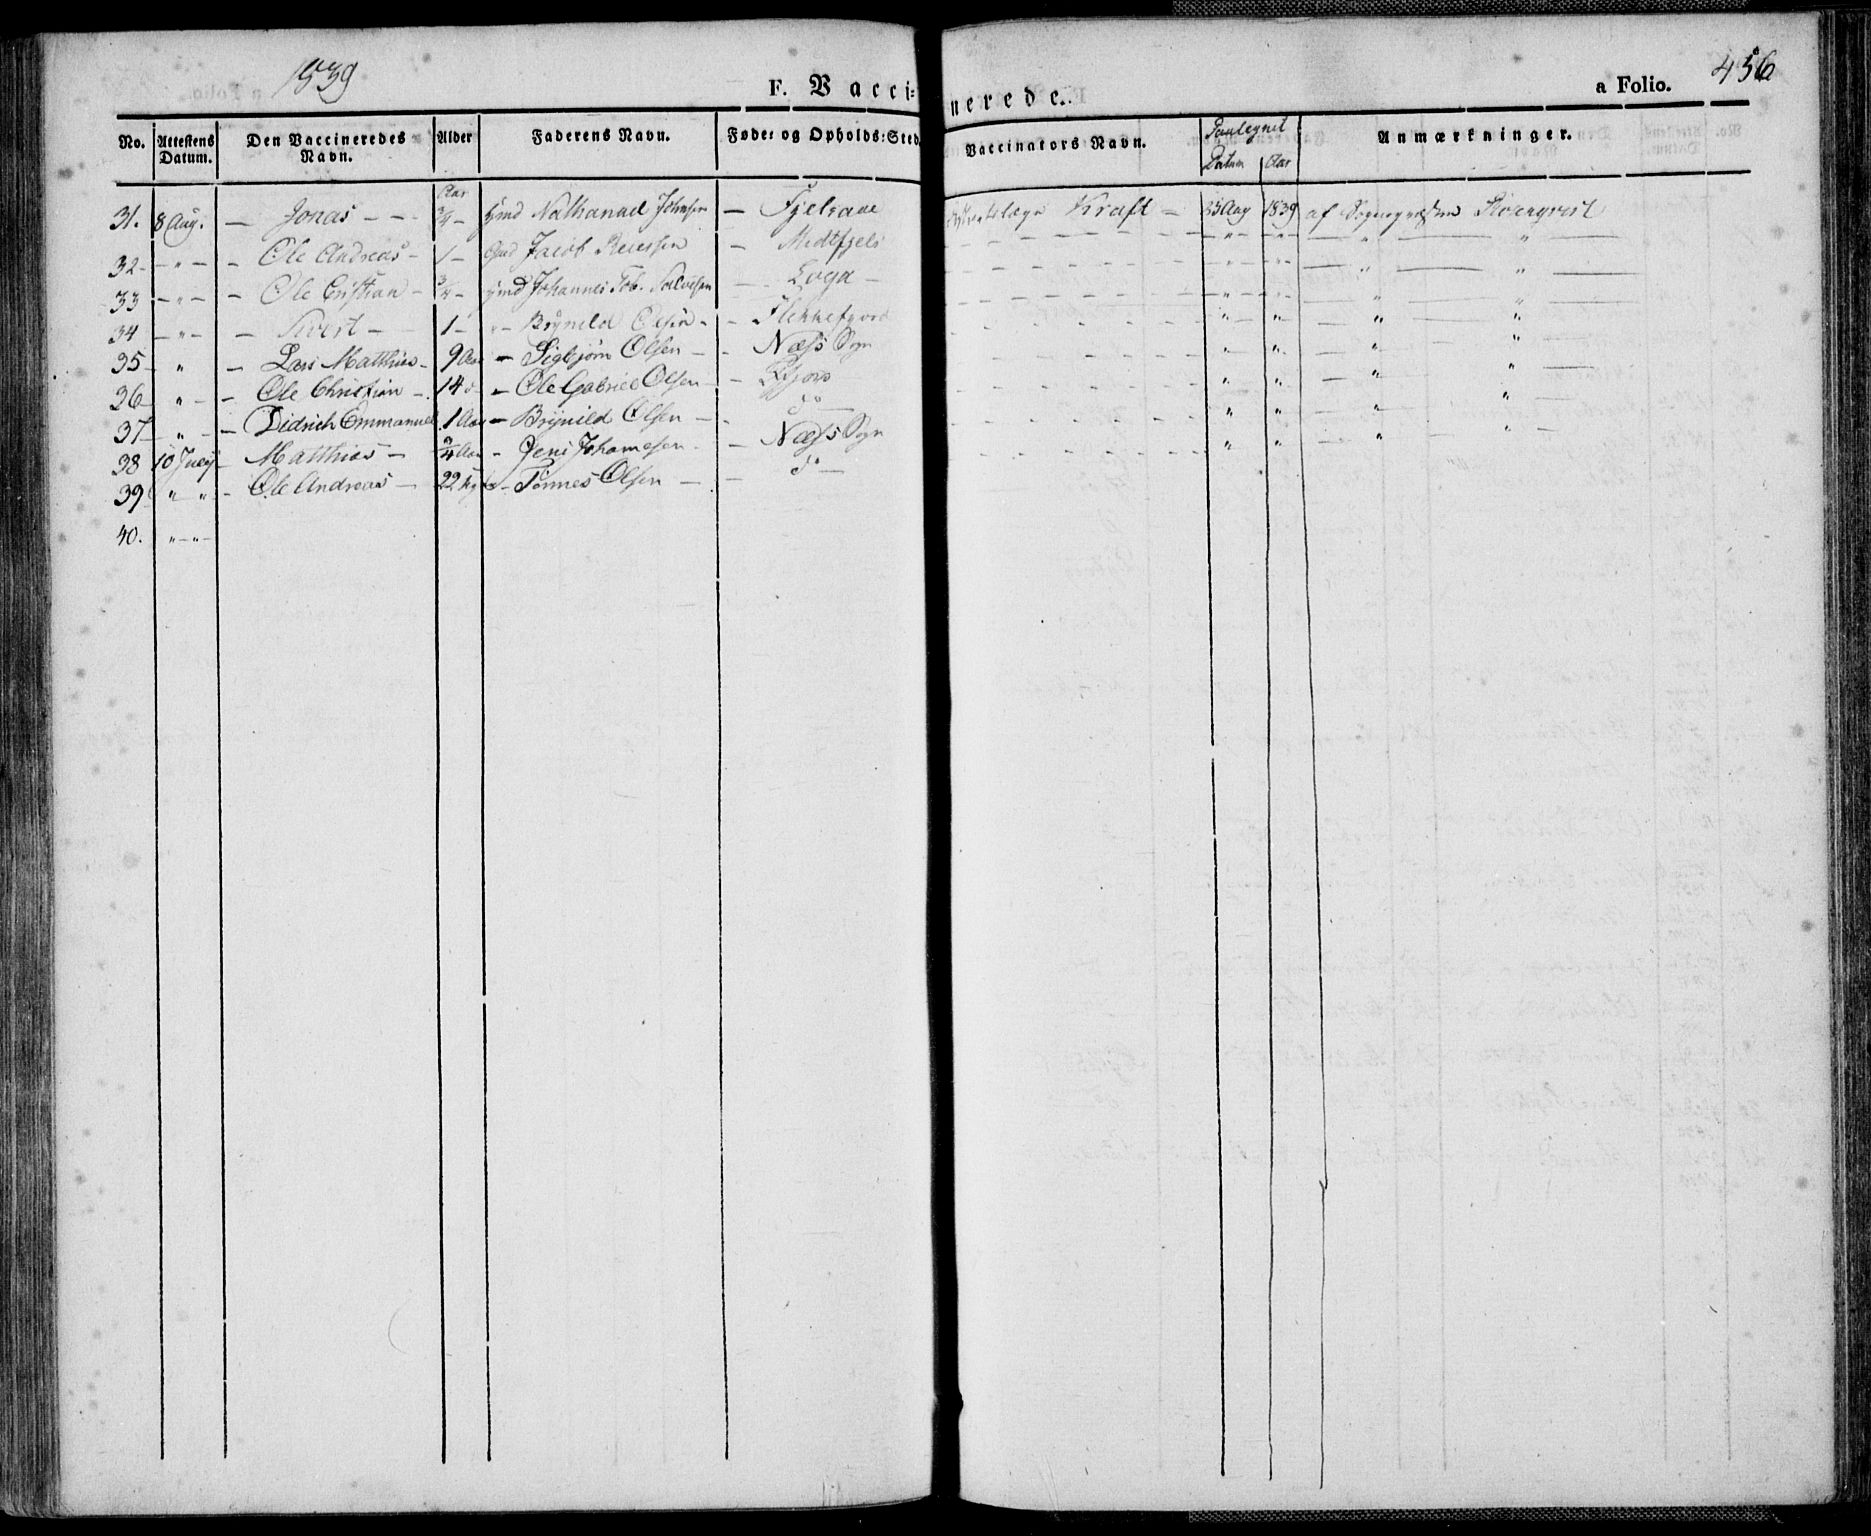 1839
F. Vaccinerede.
a Folio. 456
No. Attestens Datum. Den Vaccineredes Navn. Alder Faderens Navn. Føde: og Opholds: Sted. Vaccinators Navn. Datum Aar Anmærkninger.
Aar
31. 8 Aug. — Jonas — — 3/4 — Nathanael Johnsen — Kraft — Aug 1839 af
32 - " - — Ole Andreas — 1 — Jacob — " "
33 - " - — Ole Cristian — 3/4 — Johannes Tob. Salvesen — Loga — " "
34 - " - — Sivert — 1 — " - Brynild Olsen — " "
35 - " — Lars Matthias — 9 Aar — Sigbjørn Olsen — Næss Sogn " "
36 - " - — Ole Christian — 14 d — Ole Gabriel Olsen — " "
37 - " - — Didrich Emmanuel 1 Aar — Brynild Olsen — do — " "
38 10 July — Matthias — 3/4 Aar - Jens Johannesen — Næss Sogn " "
39 " " - Ole Andreas — 22 — Tønnes Olsen — do —
40. " - " -